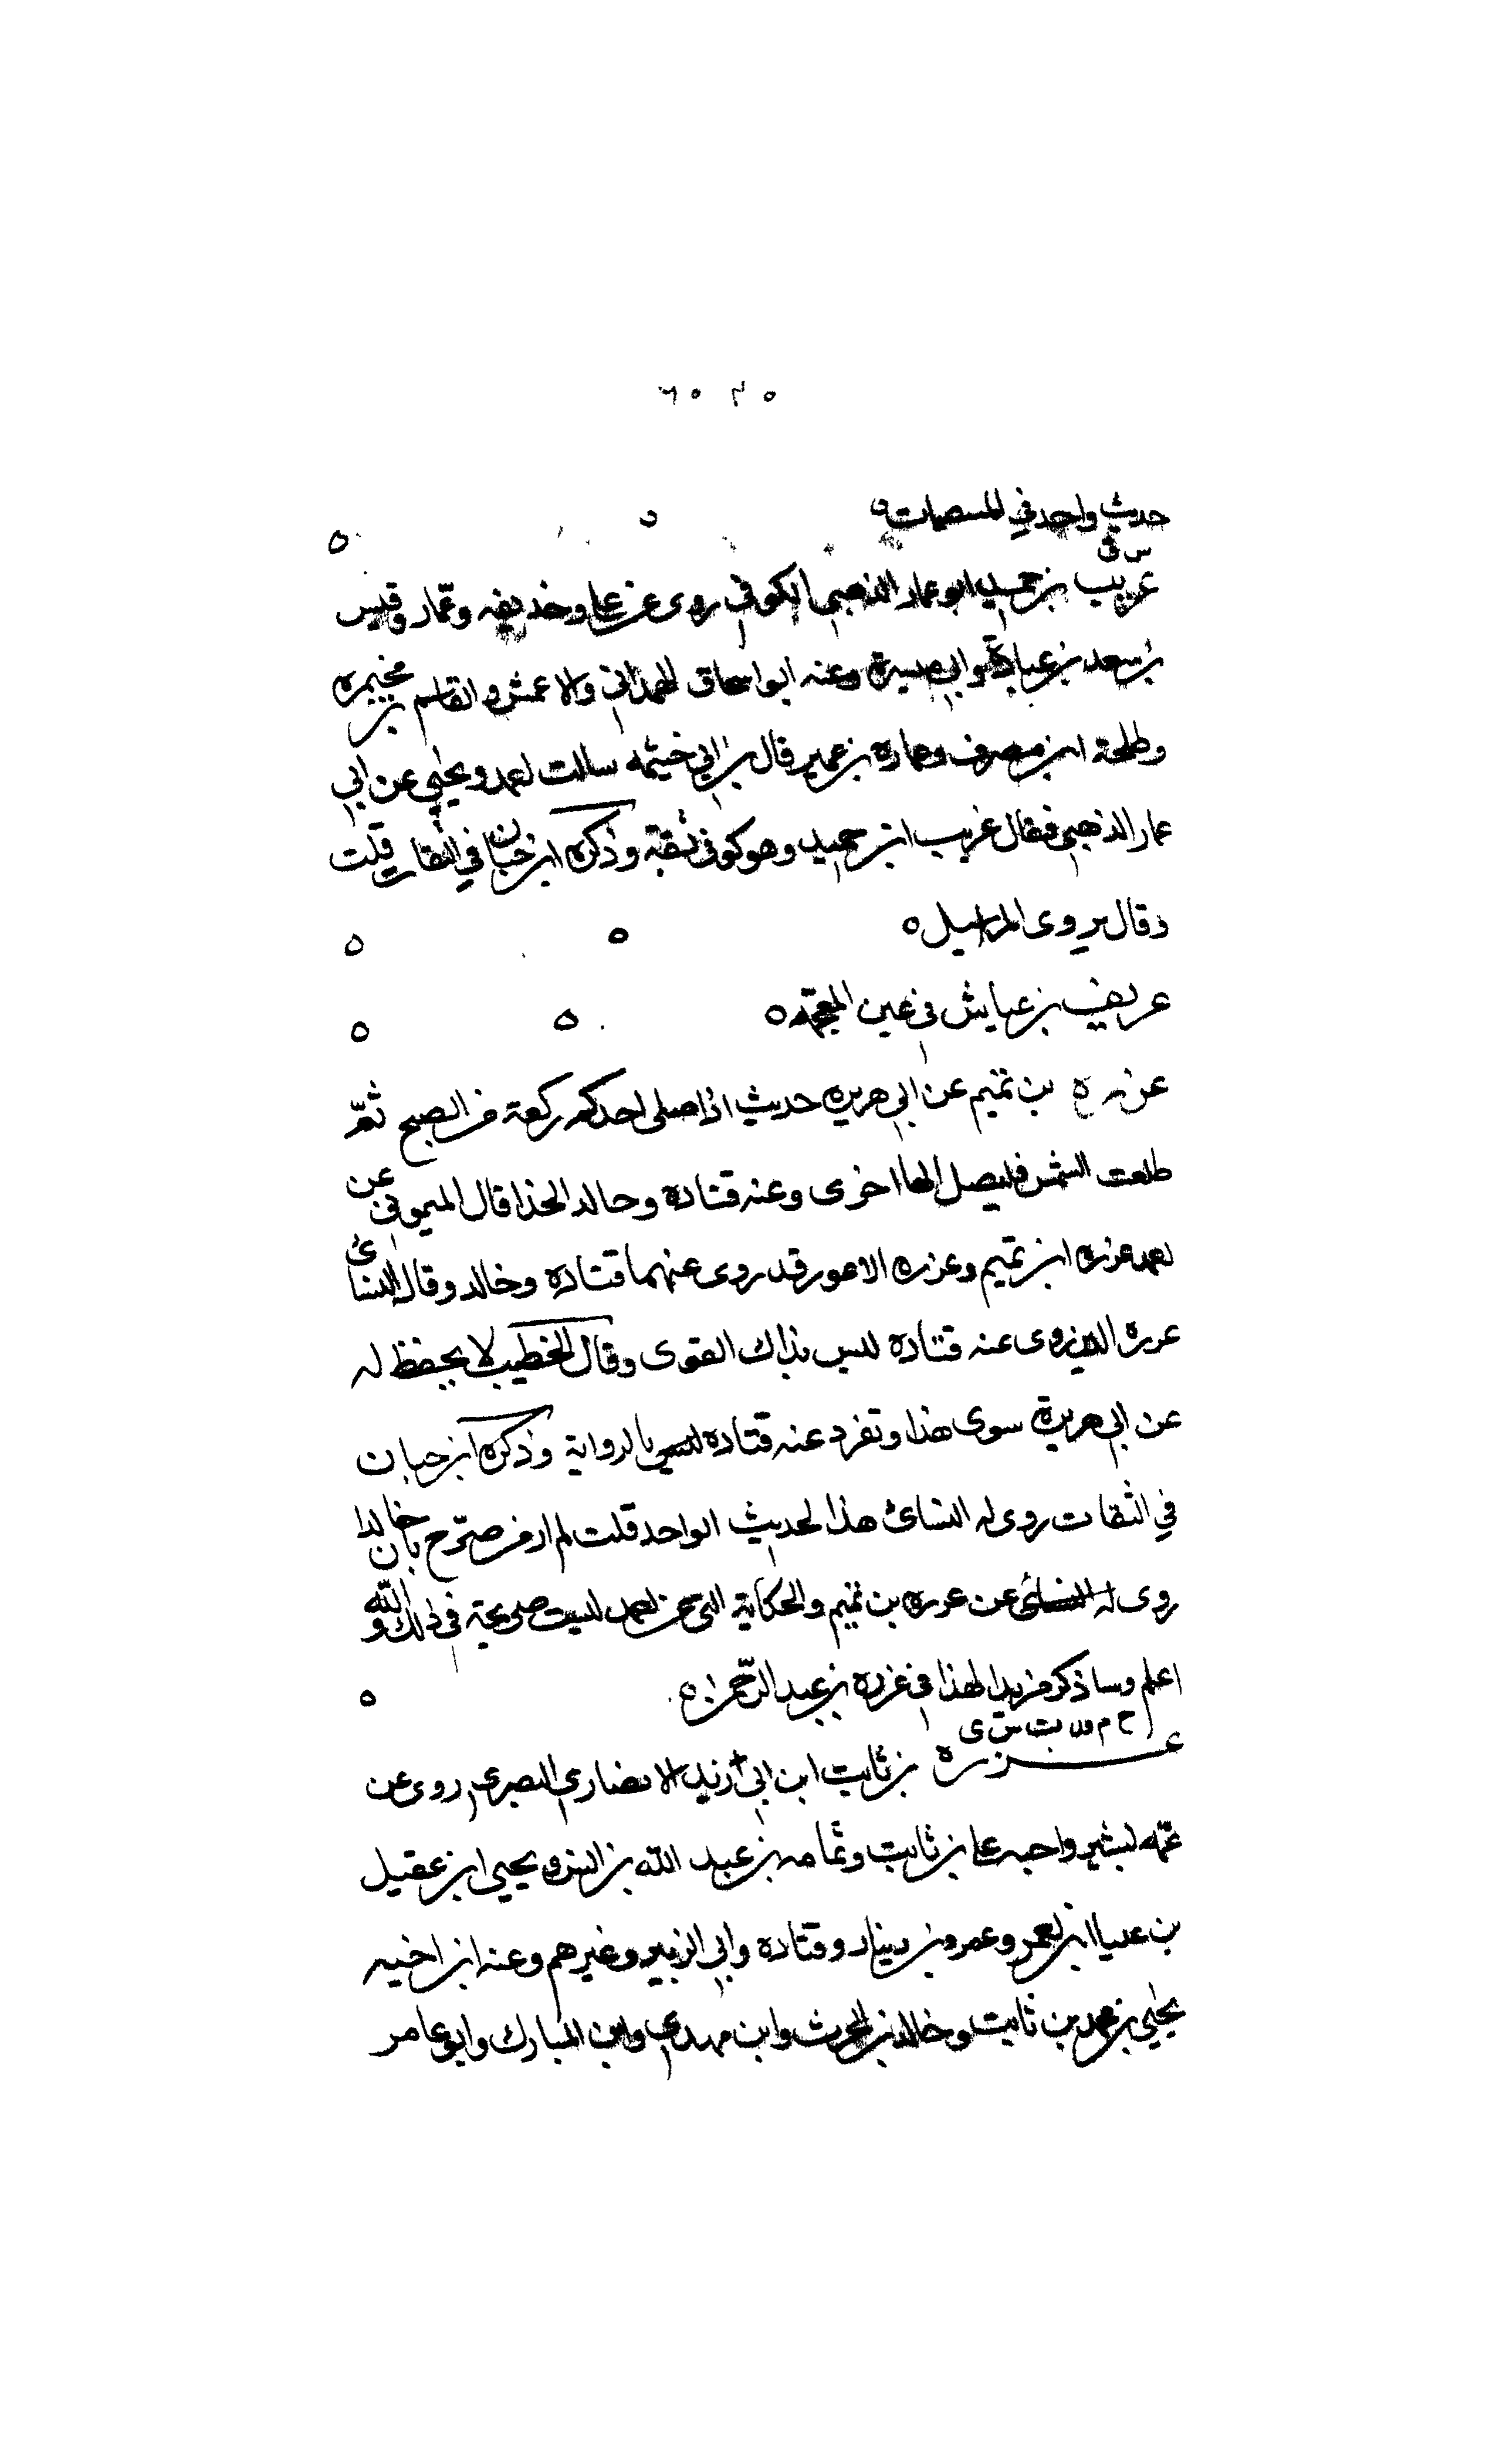 حديث واحد في المستحاضات ه
س ق
عريب بن حميد ابو عمار الدهني الكوفي روى عن علي وحذيفه وعمار وقيس
بن سعد بن عبادة وابي ميسرة وعنه ابو اسحاق الهمداني والاعمش والقاسم بن مخيمره
وطلحة ابن مصرف وعماره بن عمير قال بن ابي خيثمه سالت احمد ويحيى عن ابي
عمار الدهني فقال عريب ابن حميد وهو كوفي ثقة وذكره ابن حبان في الثقات قلت
وقال يروي المراسيل ه
عريف بن عياش في غين المعجمة ه
عزره بن تميم عن ابي هريره حديث اذا صلى احدكم ركعة من الصبح ثمّ
طلعت الشمس فليصل اليها اخرى وعنه قتادة وخالد الحذا قال الميموني عن
احمد عزره ابن تميم وعزره الاعور قد روى عنهما قتادة وخالد وقال النسائ
عزره الذي روى عنه قتاده ليس بذاك القوى وقال الخطيب لا يحفظ له
عن ابي هريرة سوى هذا وتفرد عنه قتاده بالرواية وذكره ابن حبان
في الثقات روى له النسائ هذا الحديث الواحد قلت لم ار من صرّح بان خالدا
روى عن عزره بن تميم والحكاية التي عن احمد ليست صريحة في ذلك والله
اعلم وساذكر مزيدا لهذا في عزرة بن عبد الرّحمن ه
خ م قد ت س ق
عزرة بن ثابت ابن ابي زيد الانصاري البصري روى عن
عمّه بشير واخيه علي بن ثابت وثمامه بن عبد الله بن انس ويحيى ابن عقيل
بن علباء ابن احمر وعمرو بن دينار وقتادة وابي الزبير وغيرهم وعنه ابن اخيه
يحيى بن محمد بن ثابت وخالد بن الحرث وابن مهدي وابن المبارك وابو عامر